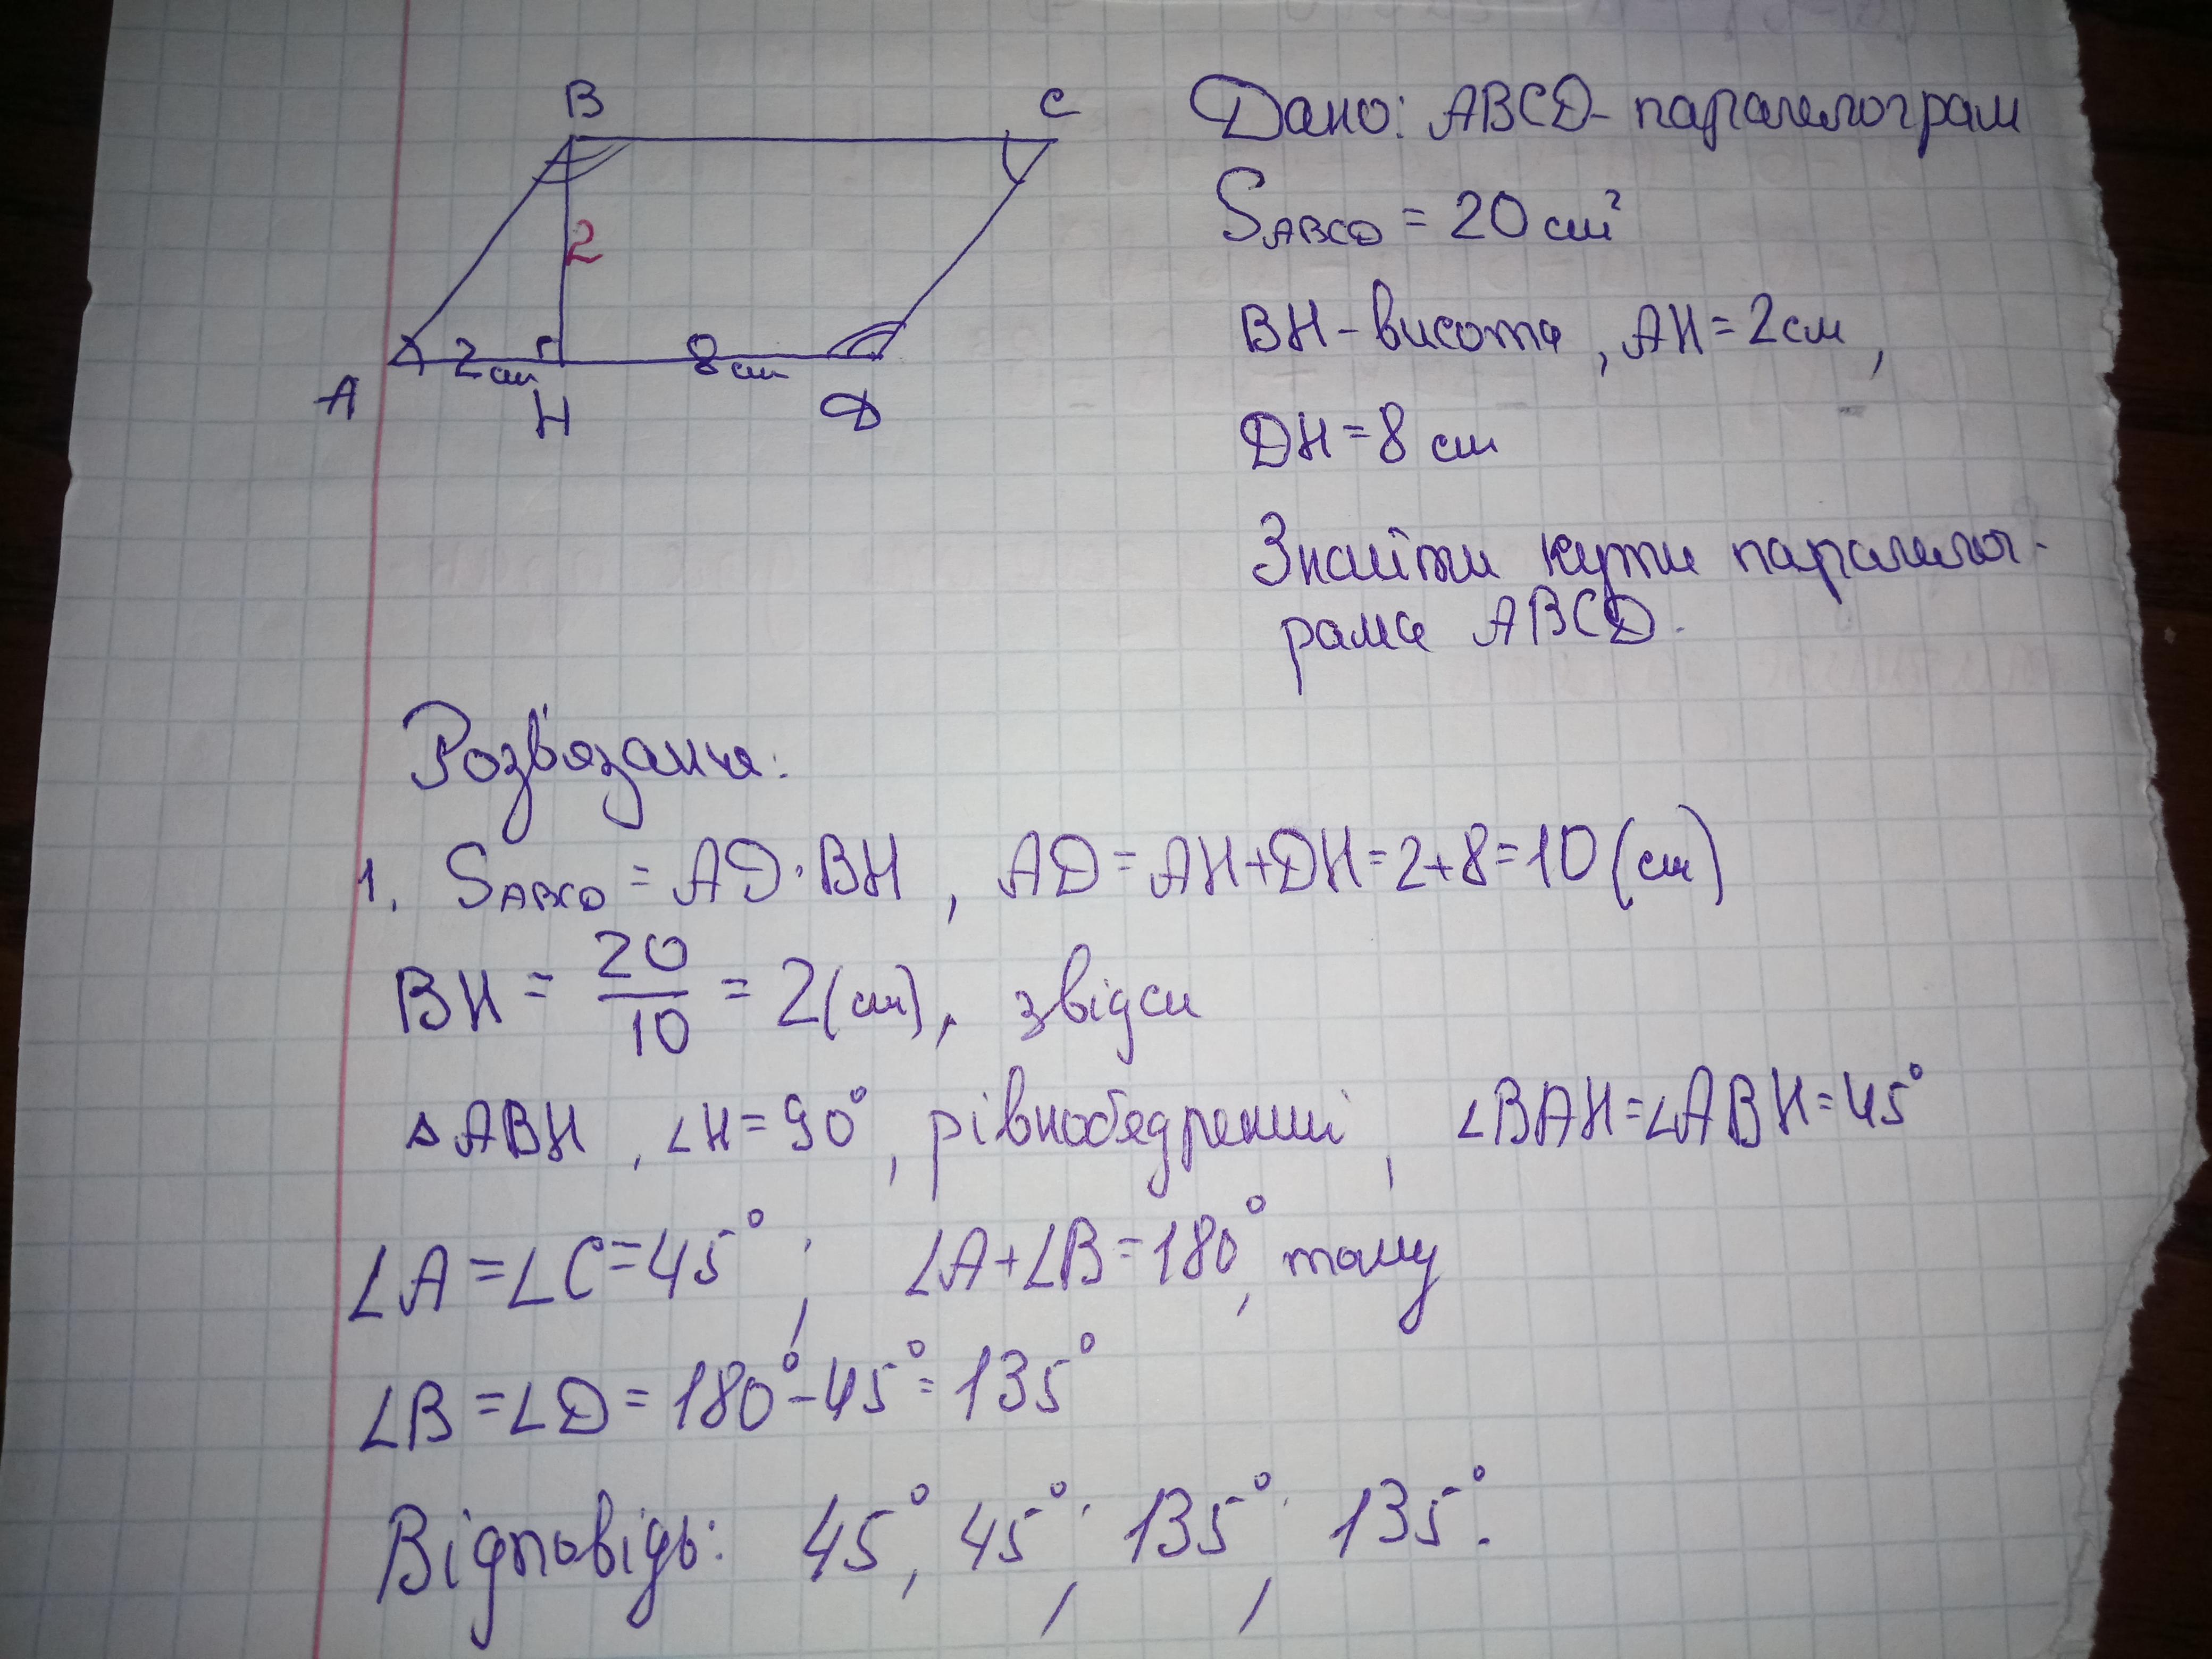 B C
2
2 см 8 см
A H D
Дано: ABCD - паралелограм
SABCD = 20 см²
BH - висота, AH = 2 см,
DH = 8 см
Знайти кути паралелог-
рама ABCD.
Розв'язання:
1. SABCD = AD · BH, AD = AH + DH = 2 + 8 = 10 (см)
BH = 20/10 = 2 (см), звідси
△ABH, ∠H = 90°, рівнобедрений, ∠BAH = ∠ABH = 45°
∠A = ∠C = 45°; ∠A + ∠B = 180°, тому
∠B = ∠D = 180° - 45° = 135°
Відповідь: 45°, 45°; 135°; 135°.